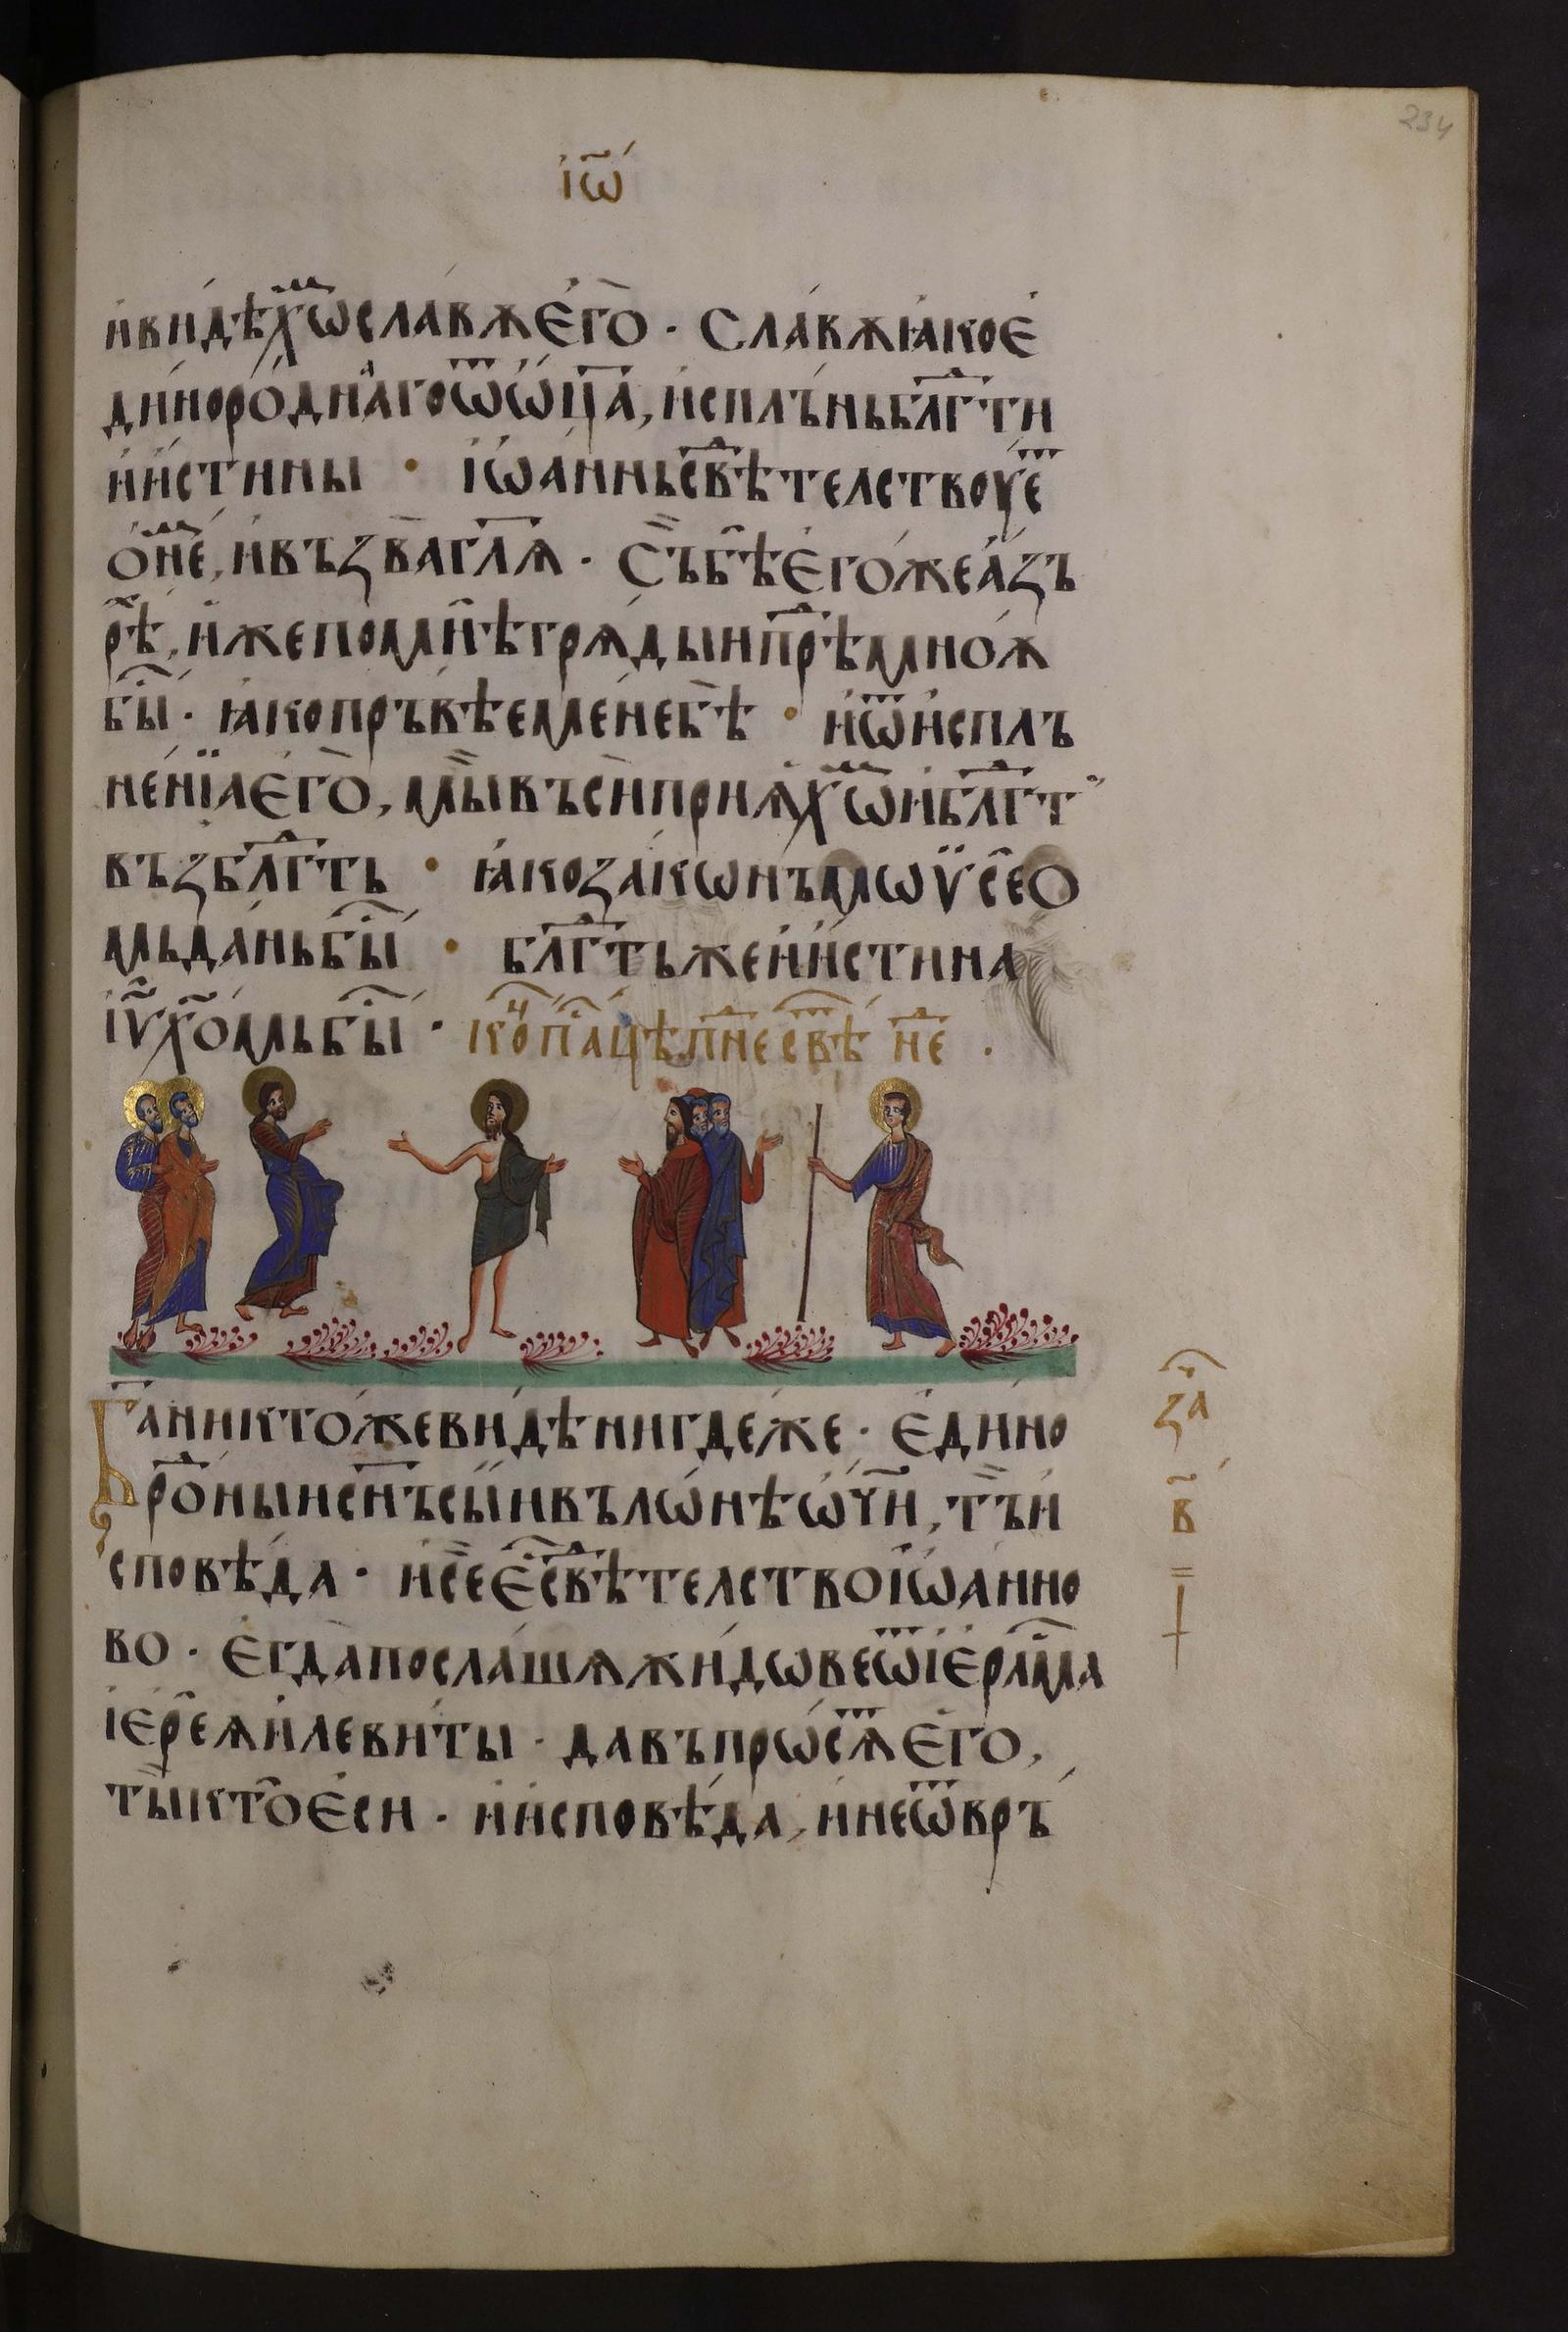 234
і҆ѡ҃
и҆видѣхⷨѡславѫѐго̀ · Сла́вѫꙗ҆коѐ
ди́норо́днаⷶгоѿѡ҆ц҃а, и҆сплъ́ньбл҃гⷣти
и҆и҆стины · і҆ѡаннъсвⷣѣтелствоуеⷮ
о҆не́ⷨ, и҆възвагл҃ѧ · Съ̏бѣ̑ѐго́жеа҆́зъ
рѣ̑, и҆жепомнѣ̑грѧ́дыипрⷣѣмно́ѫ
бы̑ · ꙗ҆копръвѣ́емене́бѣ̀ · и҆ѿи҆сплъ
не́нїаѐго̀, мы̏въсѝприѧ́хⷨѡи҆бл҃гⷣт
възбл҃гⷣть · ꙗ҆коза́кѡнъмѡѵ̈се̑о
мьда́ньбы̑ · бл҃гⷣтьжеи҆и҆стина
і҆ѵ҃х҃о́мьбы̑ · коⷰ҇пⷭ҇ацѣпⷣнесвⷮѣ нⷣе .
Б҃аникто́жеви́дѣнигде́же · Ѐди́но
роⷣныисн҃ъсы́ивълѡ́нѣѡ҆́ч҃и, тъ̏и҆
сповѣ́да · и҆се̏ѐⷭ҇свⷣѣтелствоі҆ѡанно
во · Ѐгда̀посла́шѧжи́дѡвеѿі҆ѐрⷭ҇лма
і҆ѐре̑ѧи҆леви́ты · давъпрѡ́сⷮѧѐго̀,
ты̏кто̑ѐси · и҆и҆сповѣ́да, и҆неѿвръ́
за̑
в҃